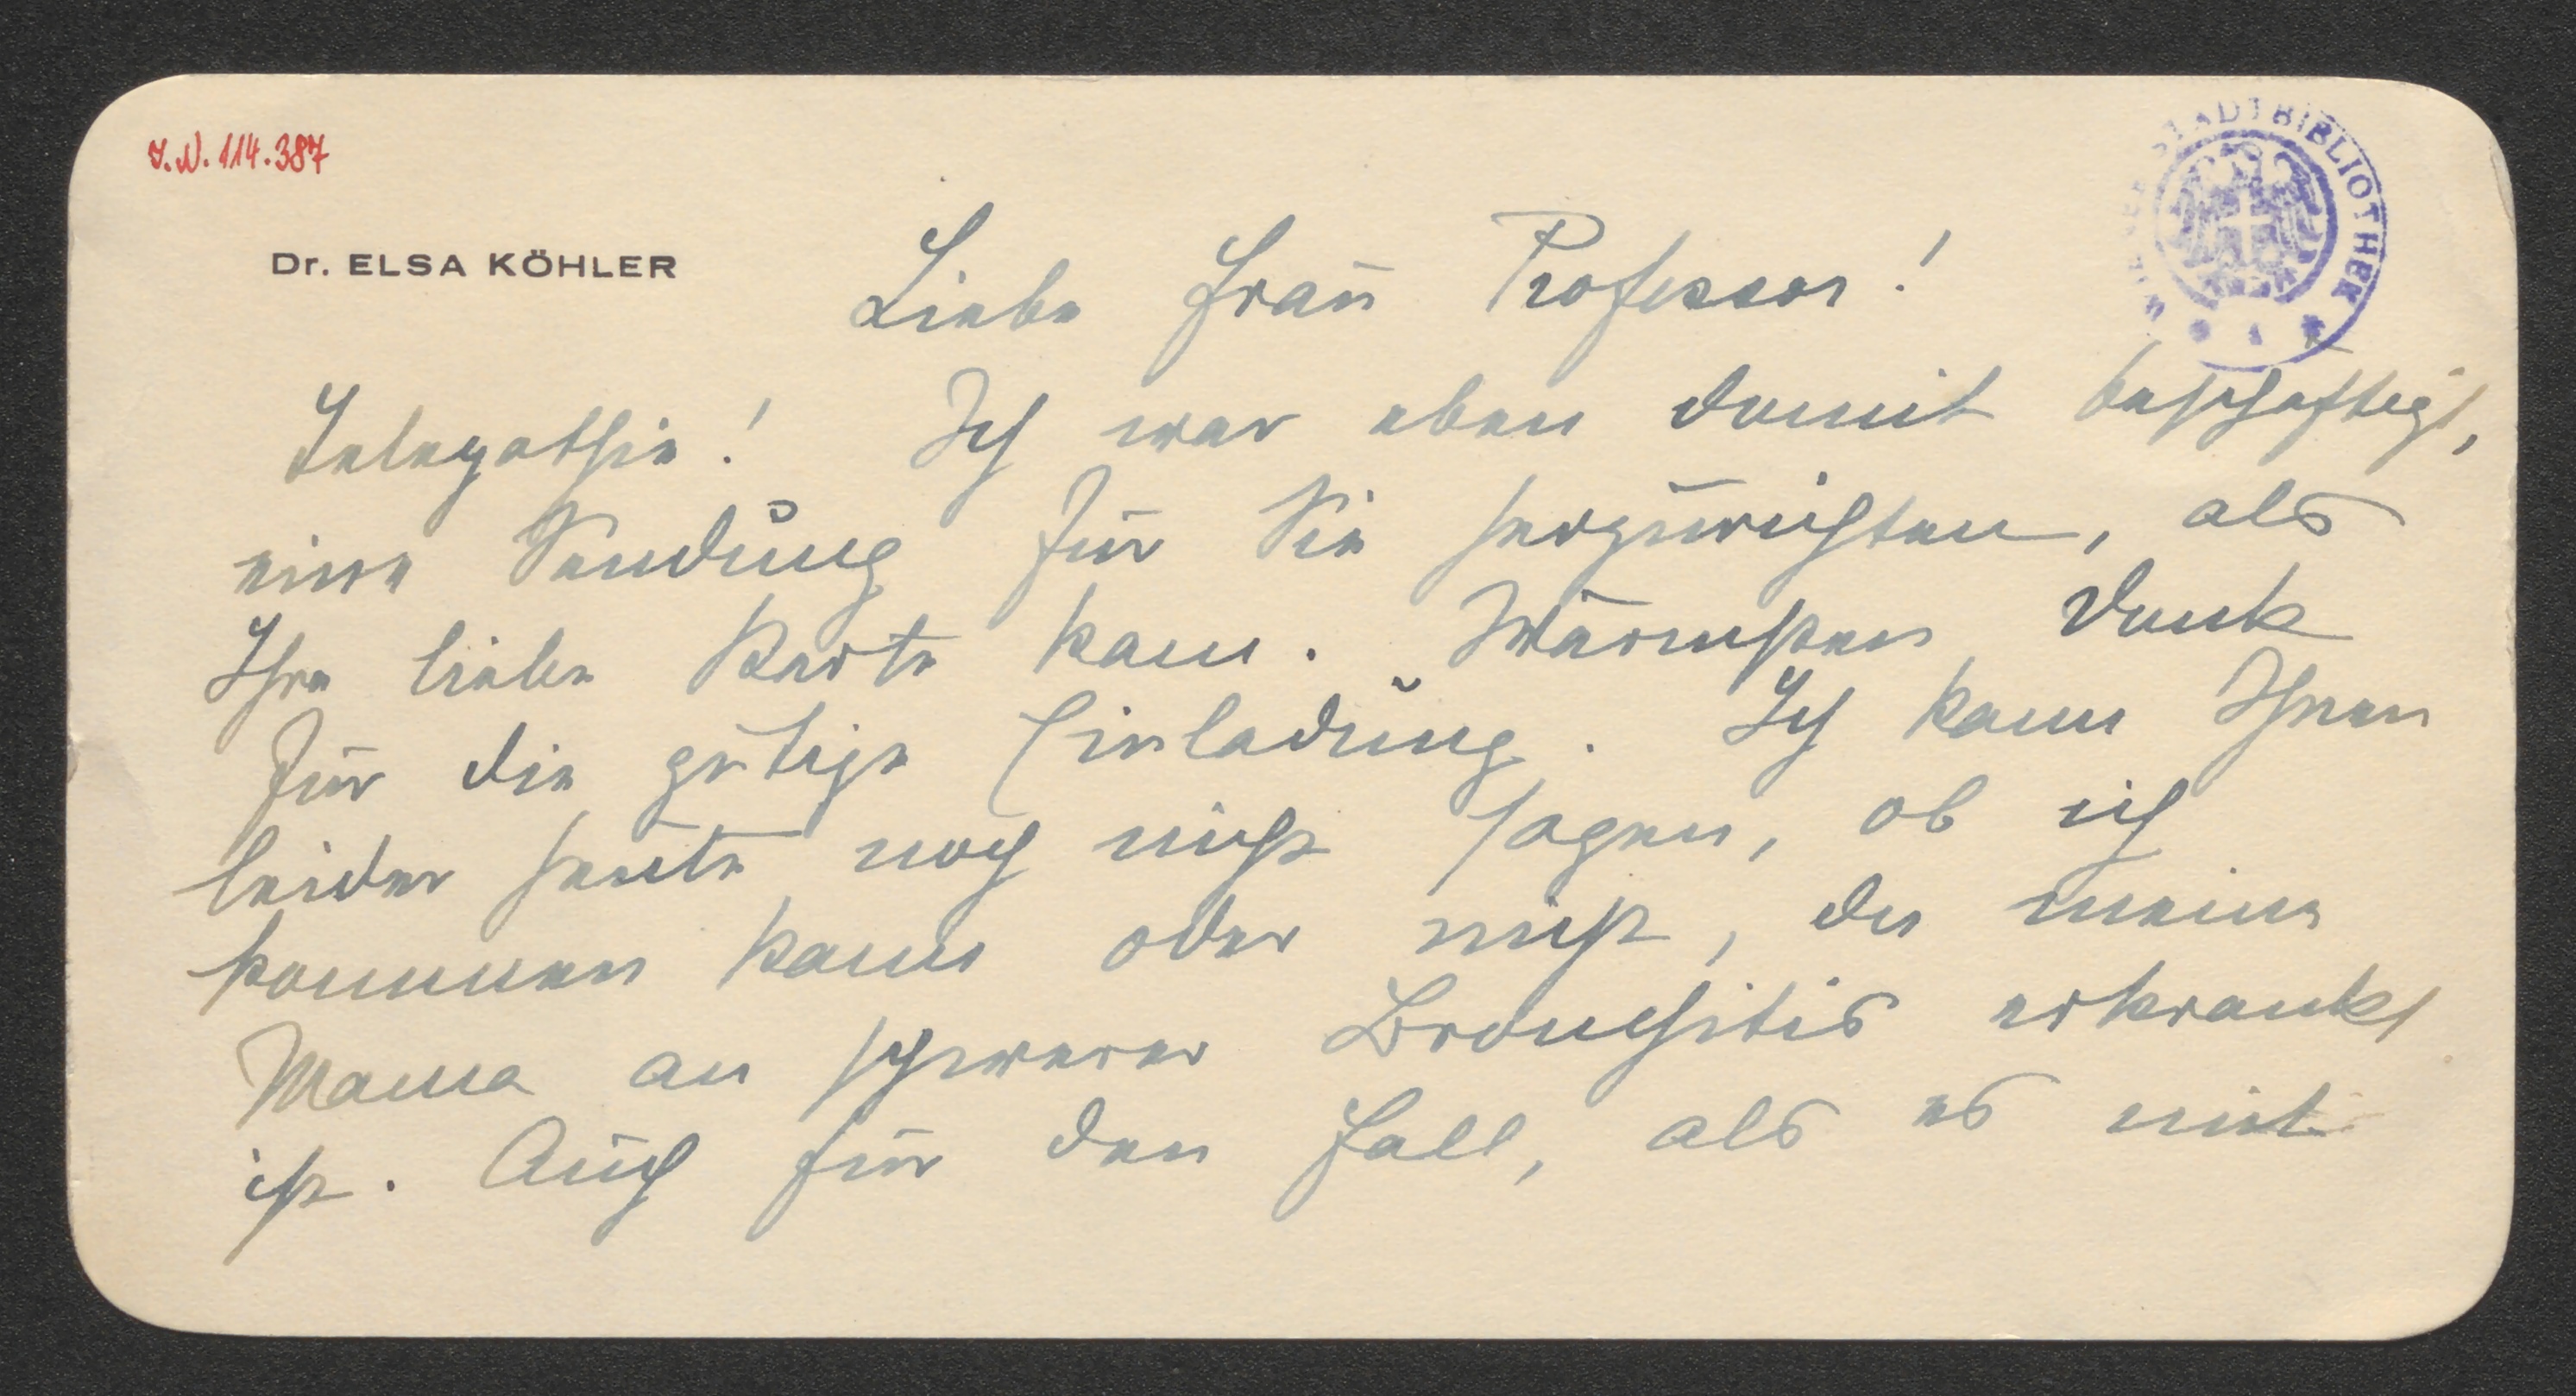 I.N. 114.387
WIENER STADTBIBLIOTHEK
Dr. ELSA KÖHLER
Liebe Frau Professor!
Telepathie! Ich war eben damit beschäftigt,
eine Sendung für Sie herzurichten, als
Ihre liebe Karte kam. Wärmsten Dank
für die gütige Einladung. Ich kann Ihnen
leider heute noch nicht sagen, ob ich
kommen kann oder nicht, da meine
Mama an schwerer Bronchitis erkrankt
ist. Auch für den Fall, als es mit